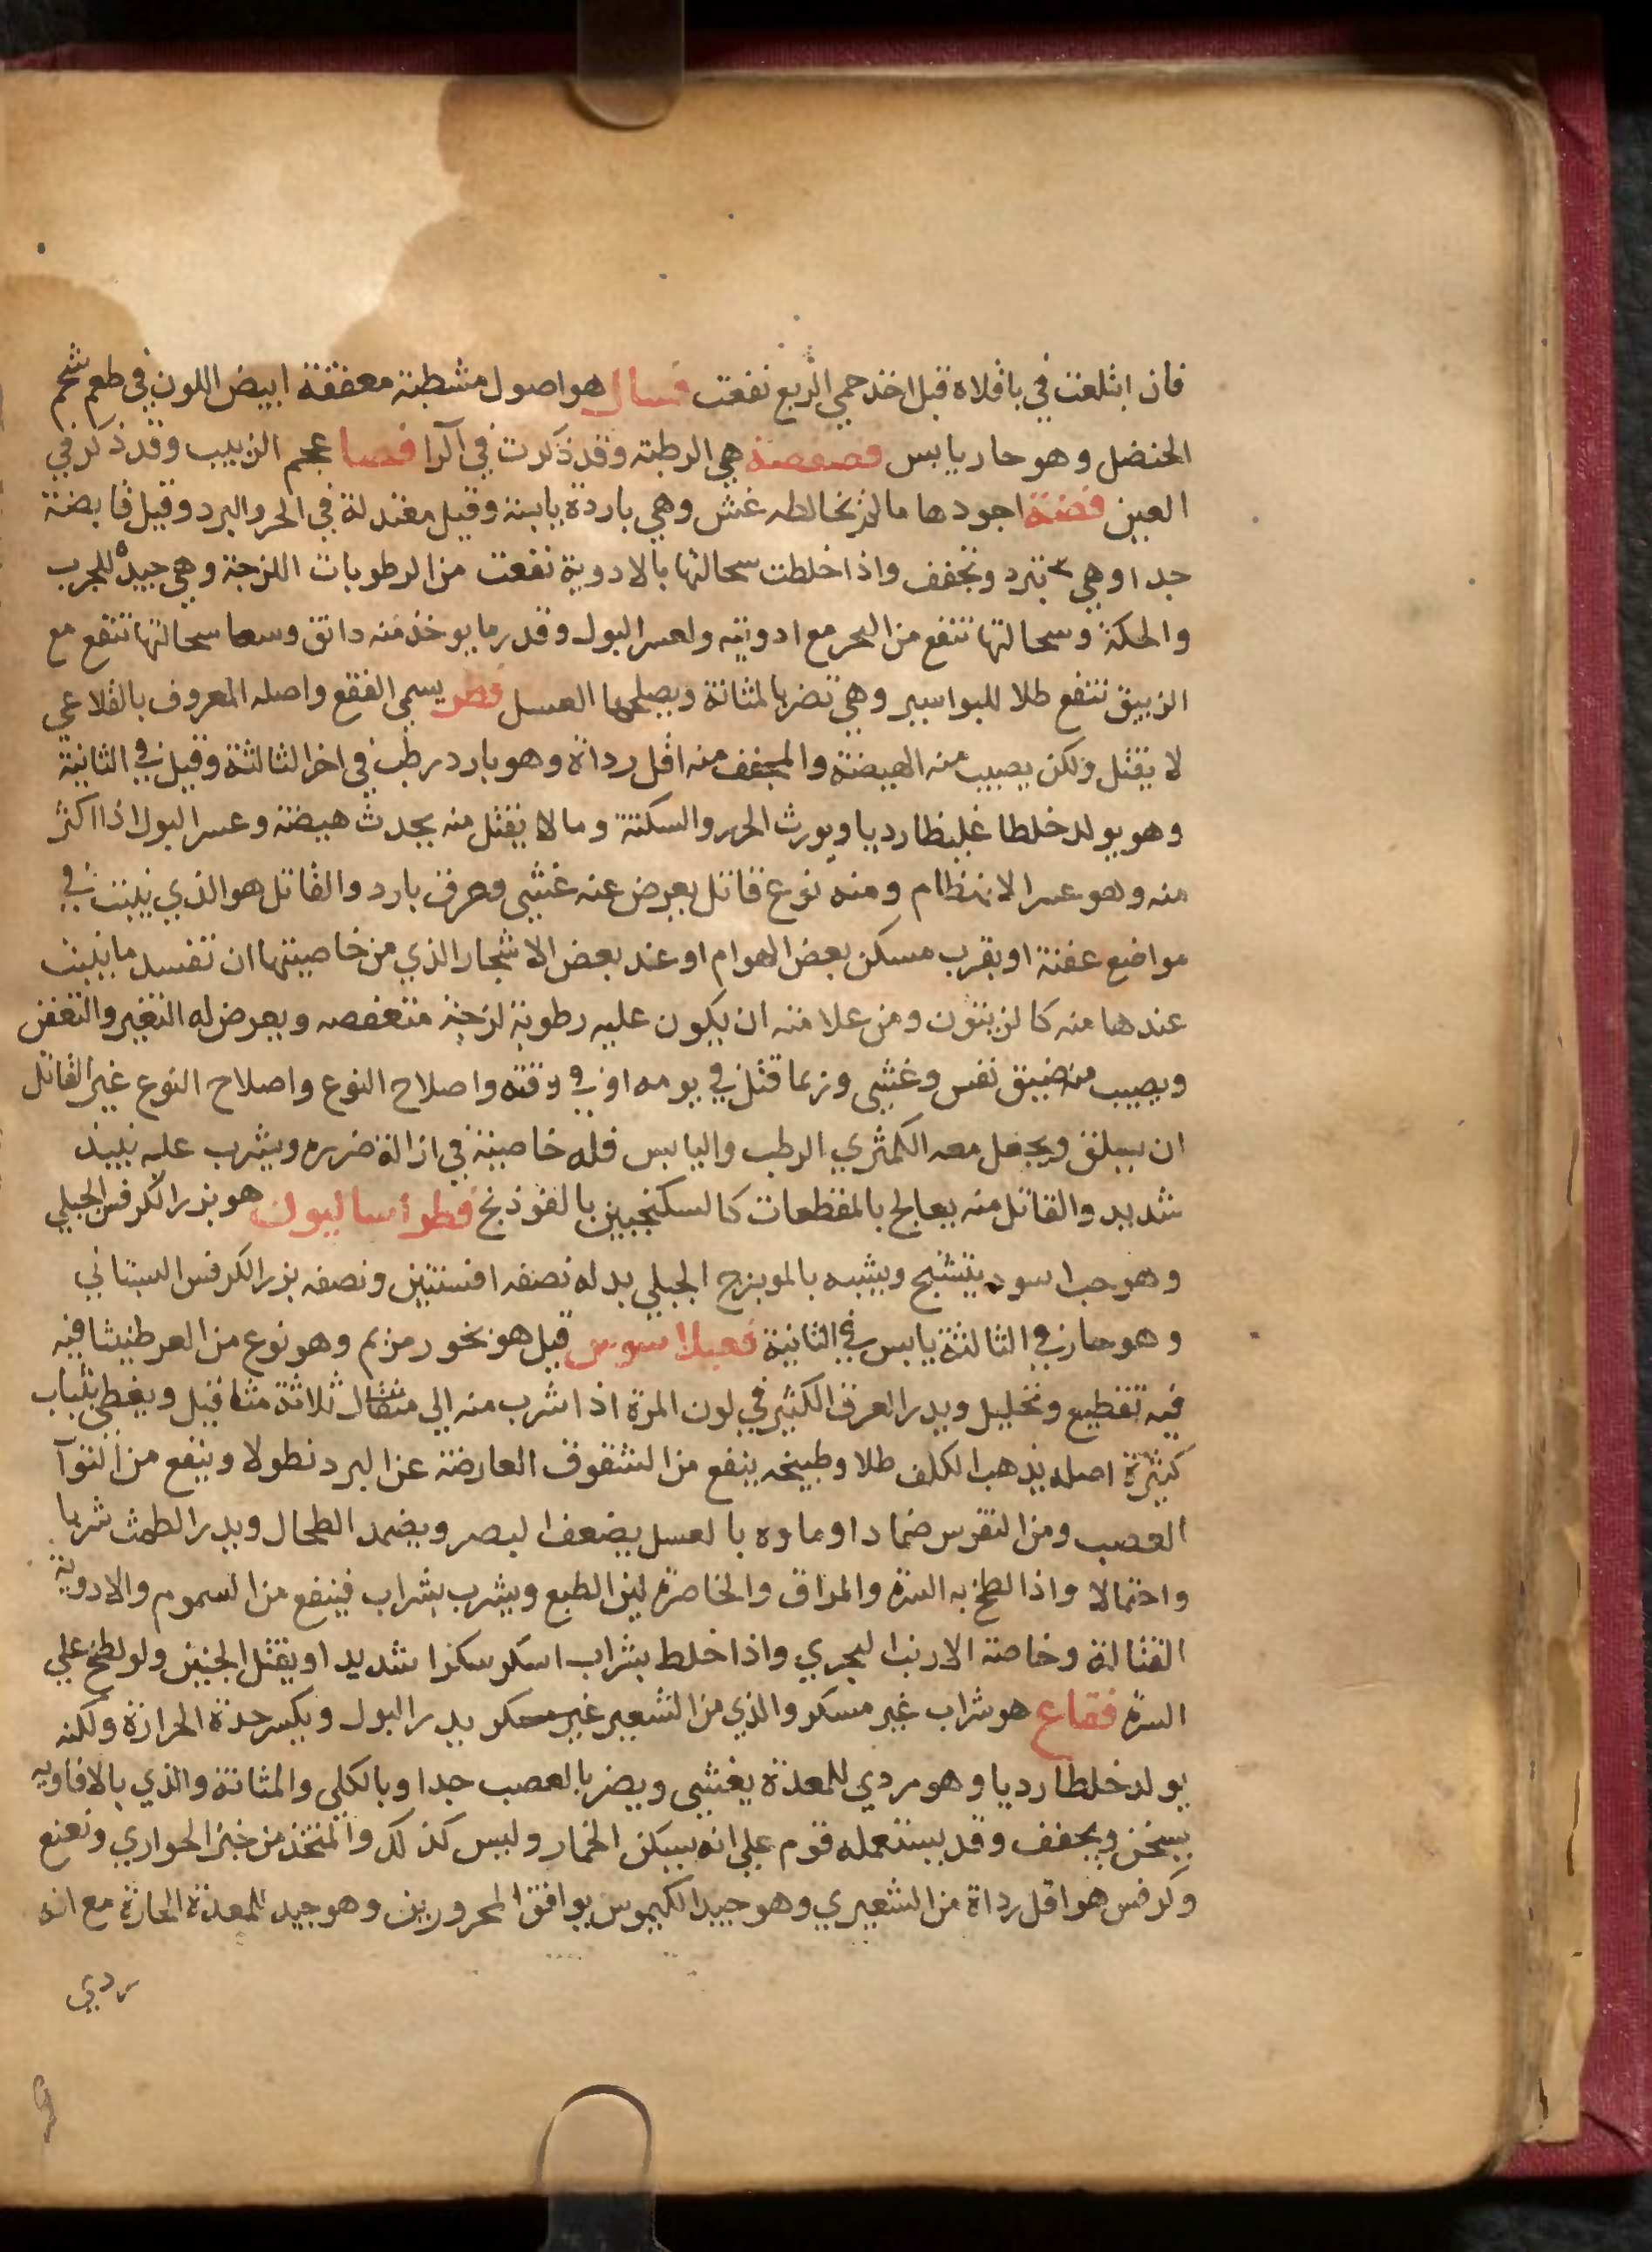 فان ابتلعت في باقلاه قبل اخذ حمي الربع نفعت فسال هو اصول مشطبة معققة ابيض اللون في طعم شحم
الحنضل وهو حار يابس فصفصة هي الرطبة وقد ذكرت في آلرا فصا عجم الزبيب وقد ذكر في
العين فضة اجودها مالم يخالطه غش وهي باردة يابسة وقيل معتدلة في الحر والبرد وقيل قابضة
جدا وهي تبرد وتجفف واذا خلطت سحالتها بالادوية نفعت من الرطوبات اللزجة وهي جيدة للجرب
والحكة وسحالتها تنفع من البحر مع ادويته ولعسر البول وقدر ما يوخذ منه دانق وسعا سحالتها تنفع مع
الزيبق تنفع طلا للبواسير وهي تضر بالمثانة ويصلحها العسل فطر يسمي الفقع واصله المعروف بالقلاعي
لا يقتل ولكن يصيب منه الهيضة والمجفف منه اقل رداة وهو بارد رطب في اخر الثالثة وقيل في الثانية
وهو يولد خلطا غليظا رديا ويورث الخدر والسكتة وما لا يقتل منه يحدث هيضة وعسر البول اذا اكثر
منه وهو عسر الانهظام ومنه نوع قاتل يعرض عنه غشي وعرق بارد والقاتل هو الذي ينبت في
مواضع عفنة او بقرب مسكن بعض الهوام او عند بعض الاشجار الذي من خاصيتها ان تفسد ما ينبت
عندها منه كالزيتون ومن علامته ان يكون عليه رطوبة لزجة متعفصه ويعرض له التغير والتعفن
ويصيب منه ضيق نفس وغشي وربما قتل في يومه او في وقته واصلاح النوع واصلاح النوع غير القاتل
ان يسلق ويجعل معه الكمثري الرطب واليابس فله خاصية في ازالة ضرره ويشرب عليه نبيذ
شديد والقاتل منه يعالج بالمقطعات كالسكنجبين بالفوذنج فطراساليون هو بزر الكرفس الجبلي
وهو حب اسود يتشنج ويشبه بالمويزج الجبلي بدله نصفه افسنتين ونصفه بزر الكرفس البستاني
وهو حار في الثالثة يابس في الثانية فعيلاسوس قيل هو بخور مريم وهو نوع من العرطنيثا فيه
فيه تقطيع وتحليل ويدر العرق الكثير في لون المرة اذا شرب منه الي مثقال ثلاثة مثاقيل ويغطى بثياب
كثيرة اصله يذهب الكلف طلا وطبيخه ينفع من الشقوق العارضة عن البرد نطولا وينفع من التوآ
العصب ومن النقرس ضمادا وماوه بالعسل يضعف البصر ويضمد الطحال ويدر الطمث شربا
واحتمالا واذا لطخ به السرة والمراق والخاصرة لين الطبع ويشرب بشراب فينفع من السموم والادوية
القتالة وخاصة الارنب البحري واذا خلط بشراب اسكر سكرا شديدا ويقتل الجنين ولو لطخ علي
السرة فقاع هو شراب غير مسكر والذي من الشعير غير مسكر يدر البول ويكسر حدة الحرارة ولكنه
يولد خلطا رديا وهو مردي للمعدة يغشى ويضر بالعصب جدا وبالكلى والمثانة والذي بالافاويه
يسخن ويجفف وقد يستعمله قوم علي انه يسكن الخمار وليس كذلك والمتخذ من خبز الحواري ونعنع
وكرفس هو اقل رداة من الشعيري وهو جيد الكيموس يوافق المحرورين وهو جيد للمعدة الحارة مع انه
ردي